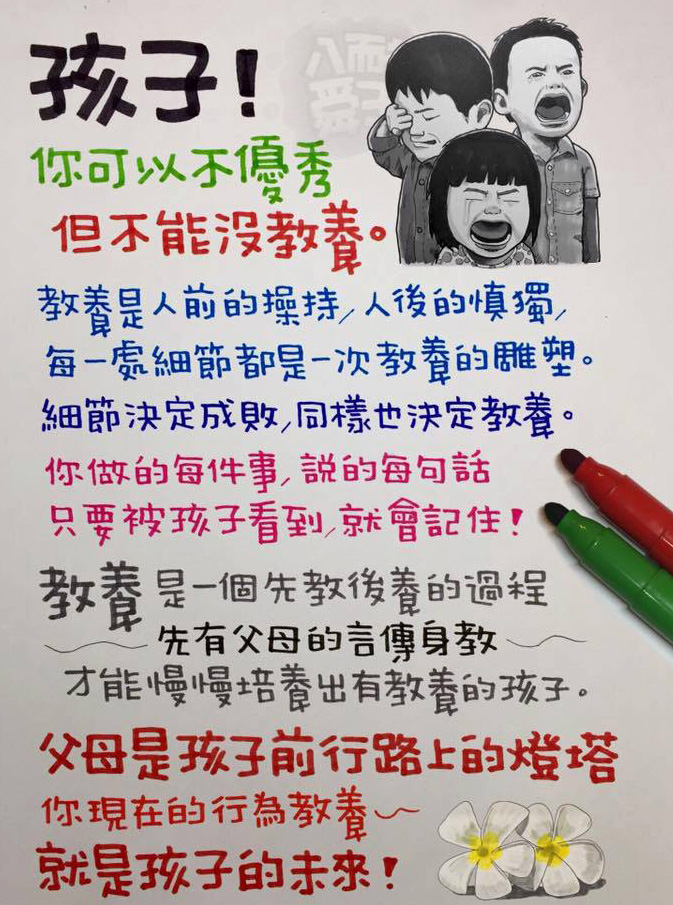 孩子!
你可以不優秀
但不能沒教養。
教養是人前的操持,人後的慎獨,
每一處細節都是一次教養的雕塑。
細節決定成敗,同樣也決定教養。
你做的每件事,說的每句話
只要被孩子看到,就會記住!
教養是一個先教後養的過程
先有父母的言傳身教
才能慢慢培養出有教養的孩子。
父母是孩子前行路上的燈塔
你現在的行為教養~
就是孩子的未來!